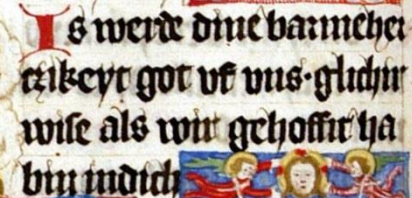 Is werde dine barmeher
czikeyt got vf vns · glichir
wise als wir gehoffit ha
bin indich